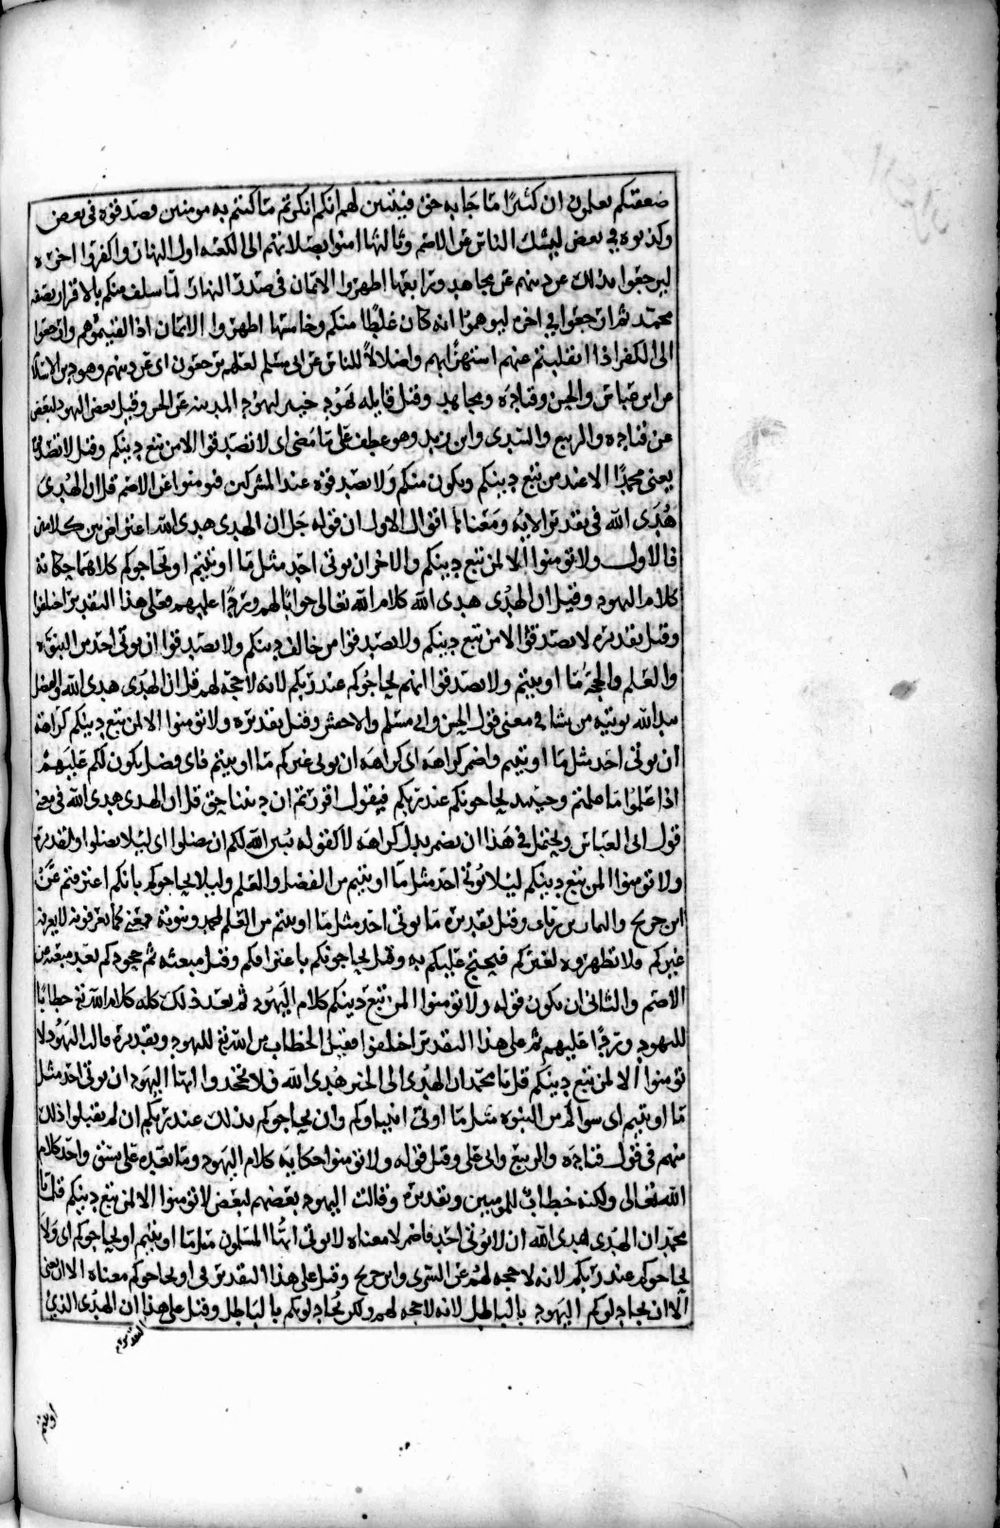 ضعفتكم يعلمون ان كثيرًا مما جا به حق فيتبين لهم انكم انكرتم ما كنتم به مومنين وصدقوه في بعض
وكذبوه في بعض ليشك الناس عن الاصم وثالثها امنوا بصلاتهم الى الكعبه اول النهار واكفروا اخره
ليرجعوا بذلك عن دينهم عن مجاهد ورابعها اظهروا الايمان في صدر النهار لما سلف منكم بالاقرار بصفه
محمد ثم ارجعوا في اخره ليوهموا انه كان غلطًا منكم وخامسها اظهروا الايمان اذا لقيتموهم وارجعوا
الى الكفر اذا انقلبتم عنهم استهزأبهم واضلالاً للناس عن ابي مسلم لعلهم يرجعون اي عن دينهم وهو دين الاسلام
عن ابن عباس والحسن وقتاده ومجاهد وقيل قايله يهود خيبر ليهود المدينه عن الحسن وقيل بعض اليهود لبعض
عن قتاده والربيع والسدى وابن زيد وهو عطف على ما مضى اى لا تصدقوا الا من تبع دينكم وقيل لا تصدقوا
يعني محمدًا الا عند من تبع دينكم ويكون منكم ولا تصدقوه عند المشركين فيومنوا عن الاصم قل ان الهدى
هدى الله في تقدير الايه ومعناها اقوال الاول ان قوله جل ان الهدى هدى الله اعتراض بين كلامين
فالاول ولا تومنوا الا لمن تبع دينكم والاخر ان يوتى احد مثل ما اوتيتم او يحاجوكم كلاهما حكاية
كلام اليهود وقيل ان الهدى هدى الله كلام الله تعالى جوابًا لهم وردًا عليهم فعلى هذا التقدير اختلفوا
وقيل تقديره لا تصدقوا الا من تبع دينكم ولا تصدقوا من خالف دينكم ولا تصدقوا ان يوتى احد من النبوه
والعلم والحجة ما اوتيتم ولا تصدقوا انهم يحاجوكم عند ربكم لانه لا حجة لهم قل ان الهدى هدى الله والفضل
بيد الله يوتيه من يشا في معنى قول الحسن وابي مسلم والاخفش وقيل تقديره ولا تومنوا الا لمن تبع دينكم كراهة
ان يوتى احد مثل ما اوتيتم واضمر كراهه اى كراهه ان يوتى غيركم ما اوتيتم فاى فضل يكون لكم عليهم
اذا علموا ما علمتم وحينيذ يحاجونكم عند ربكم فيقول اقررتم ان ديننا حق قل ان الهدى هدى الله في معنى
قول ابي العباس ويحتمل في هذا ان يضمر بدل كراهه لا كقوله يبين الله لكم ان تضلوا اى ليلا تضلوا والتقدير
ولا تومنوا الا لمن تبع دينكم ليلا يوتى احد مثل ما اوتيتم من الفضل والعلم وليلا يحاجوكم بانكم اعترفتم عن
ابن جريج واليمان بن رياب وقيل تقديره ما يوتى احد مثل ما اوتيتم من العلم لمحمد ونبوته كما تعرفونه لا يعرفه
غيركم ولا تظهروه لغيركم فيحتج عليكم به وقيل يحاجونكم باعترافكم وقيل مبعثه ثم جحودكم بعد مبعثه عن
الاصم والثانى ان يكون قوله ولا تومنوا الا لمن تبع دينكم كلام اليهود ثم بعد ذلك كله كلام الله خطابًا
لليهود وردًا عليهم ثم على هذا التقدير اختلفوا فقيل الخطاب من الله لليهود وتقديره قالت اليهود لا
تومنوا الا لمن تبع دينكم قل يا محمد ان الهدى الى الخير هدى الله فلا تجحدوا ايها اليهود ان يوتى احد مثل
ما اوتيتم اى سواكم من النبوه مثل ما اوتى انبياوكم وان يحاجوكم بذلك عند ربكم ان لم تقبلوا ذلك
منهم في قول قتاده والربيع وابي على وقيل قوله ولا تومنوا حكايه كلام اليهود وما بعده على نسق واحد كلام
الله تعالى ولكنه خطاب للمومنين وتقديره وقالت اليهود بعضهم لبعض لا تومنوا الا لمن تبع دينكم قل يا
محمد ان الهدى هدى الله ان لا يوتى احد فاضمر لا معناه لا يوتى ايها المسلمون مثل ما اوتيتم او يحاجوكم اى ولا
يحاجوكم عند ربكم لانه لا حجه لهم عن السدى وابن جريج وقيل على هذا التقدير في او يحاجوكم معناه الا ان يعنى
الا ان يجادلوكم اليهود بالباطل لانه لا حجه لهم ولكن يجادلوكم بالباطل وقيل على هذا ان الهدى الذي
اوتيتم